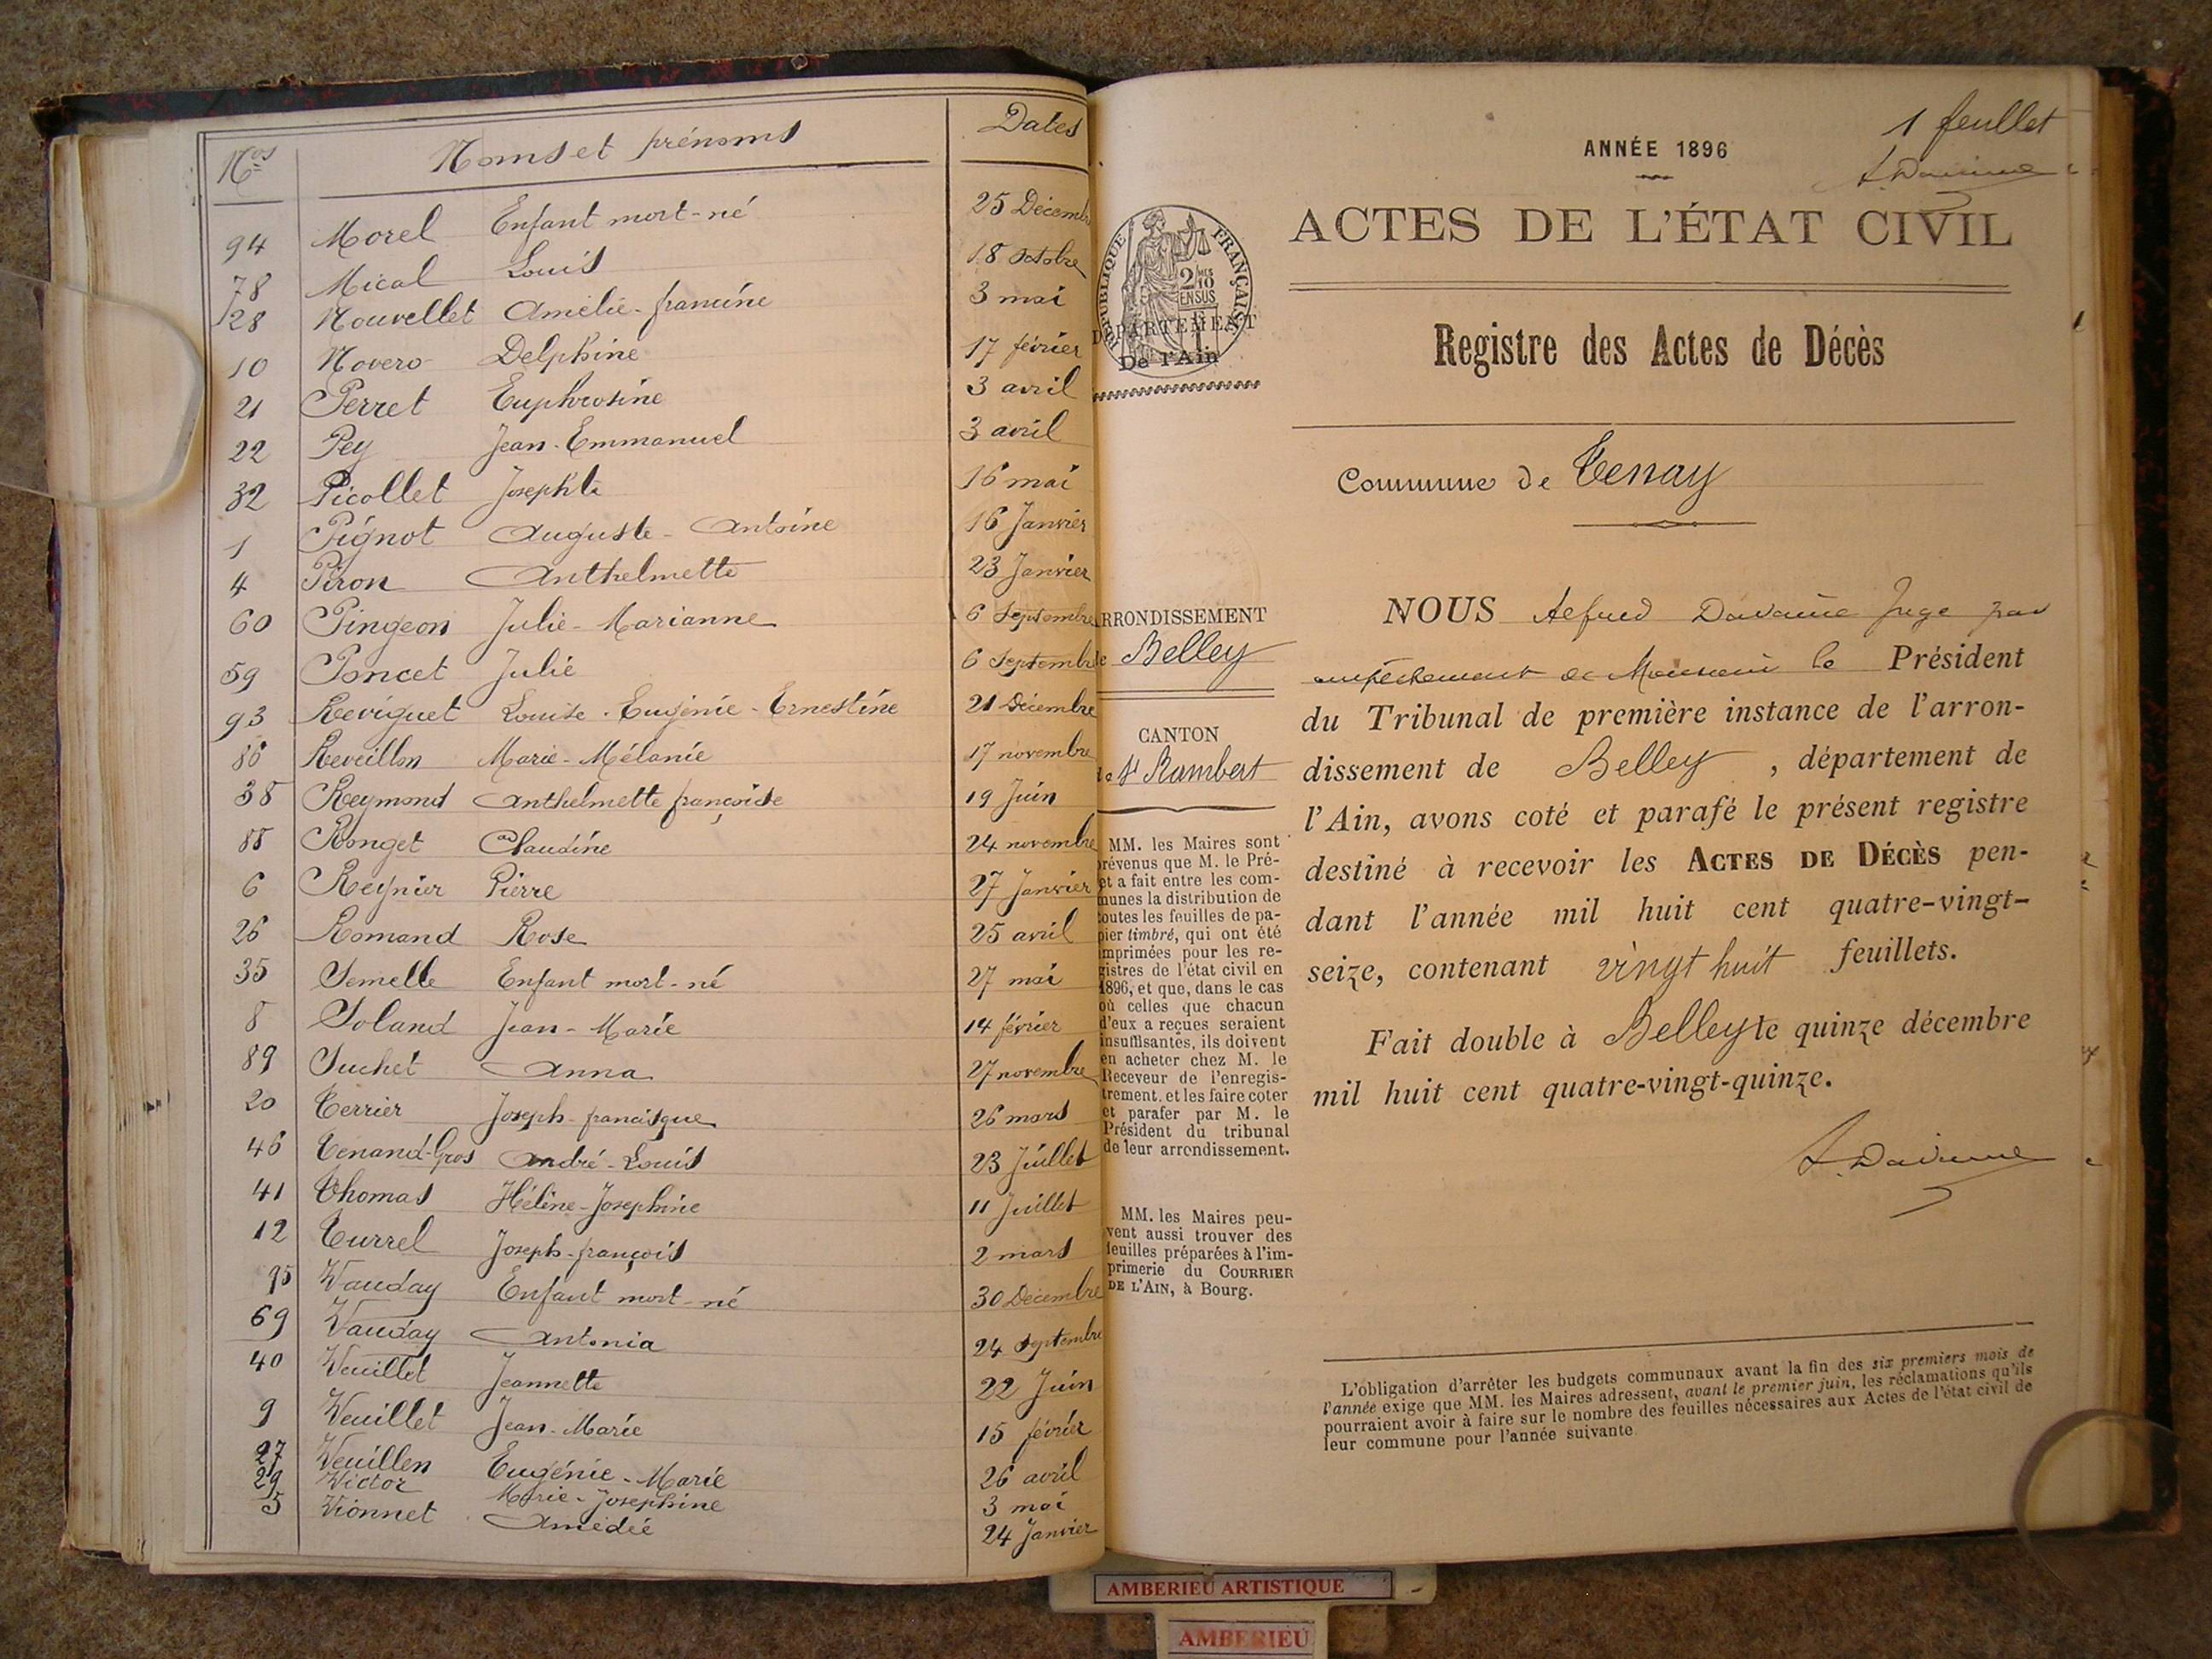 Nos Noms et prénoms Dates
94 Morel Enfant mort-né 25 Décemb
78 Mical Louis 18 octobre
28 Nouvellet Amélie-francine 3 mai
10 Novero Delphine 17 février
21 Perret Euphrosine 3 avril
22 Pey Jean-Emmanuel 3 avril
32 Picollet Josephte 16 mai
1 Pignot Auguste-Antoine 16 Janvier
4 Piron Anthelmette 23 Janvier
60 Pingeon Julie-Marianne 6 Septembre
59 Poncet Julie 6 Septembre
93 Reviguet Louise-Eugénie-Ernestine 21 Décembre
86 Reveillon Marie-Mélanie 17 novembre
38 Reymond Anthelmette françoise 19 Juin
88 Ronget Claudine 24 novembre
6 Reynier Pierre 27 Janvier
26 Romand Rose 25 avril
35 Semelle Enfant mort-né 27 mai
8 Soland Jean-Marie 14 février
89 Suchet Anna 27 novembre
20 Terrier Joseph-francisque 26 mars
46 Tenand-Gros André-Louis 23 Juillet
41 Thomas Hélène-Josephine 11 Juillet
12 Turrel Joseph-françois 2 mars
95 Vauday Enfant mort-né 30 Décembre
69 Vauday Antonia 24 Septembre
40 Veuillet Jeannette 22 Juin
9 Veuillet Jean-Marie 15 février
27 Veuillen Eugénie-Marie 26 avril
29 Victor Marie-Josephine 3 mai
5 Vionnet Amédée 24 Janvier
1 feuillet
ANNÉE 1896
A. Davaine
ACTES DE L'ÉTAT CIVIL
RÉPUBLIQUE FRANÇAISE
2/10 EN SUS
DÉPARTEMENT
De l'Ain
Registre des Actes de Décès
Commune de Tenay
ARRONDISSEMENT
de Belley
CANTON
de St Rambert
MM. les Maires sont
prévenus que M. le Pré-
et a fait entre les com-
munes la distribution de
toutes les feuilles de pa-
pier timbré, qui ont été
imprimées pour les re-
gistres de l'état civil en
1896, et que, dans le cas
où celles que chacun
d'eux a reçues seraient
insuffisantes, ils doivent
en acheter chez M. le
Receveur de l'enregis-
trement, et les faire coter
et parafer par M. le
Président du tribunal
de leur arrondissement.
MM. les Maires peu-
vent aussi trouver des
feuilles préparées à l'im-
primerie du COURRIER
DE L'AIN, à Bourg.
NOUS Alfred Davaine Juge par
empêchement de Monsieur le Président
du Tribunal de première instance de l'arron-
dissement de Belley, département de
l'Ain, avons coté et parafé le présent registre
destiné à recevoir les ACTES DE DÉCÈS pen-
dant l'année mil huit cent quatre-vingt-
seize, contenant vingt huit feuillets.
Fait double à Belley le quinze décembre
mil huit cent quatre-vingt-quinze.
A. Davaine
L'obligation d'arrêter les budgets communaux avant la fin des six premiers mois de
l'année exige que MM. les Maires adressent, avant le premier juin, les réclamations qu'ils
pourraient avoir à faire sur le nombre des feuilles nécessaires aux Actes de l'état civil de
leur commune pour l'année suivante.
AMBERIEU ARTISTIQUE
AMBERIEU